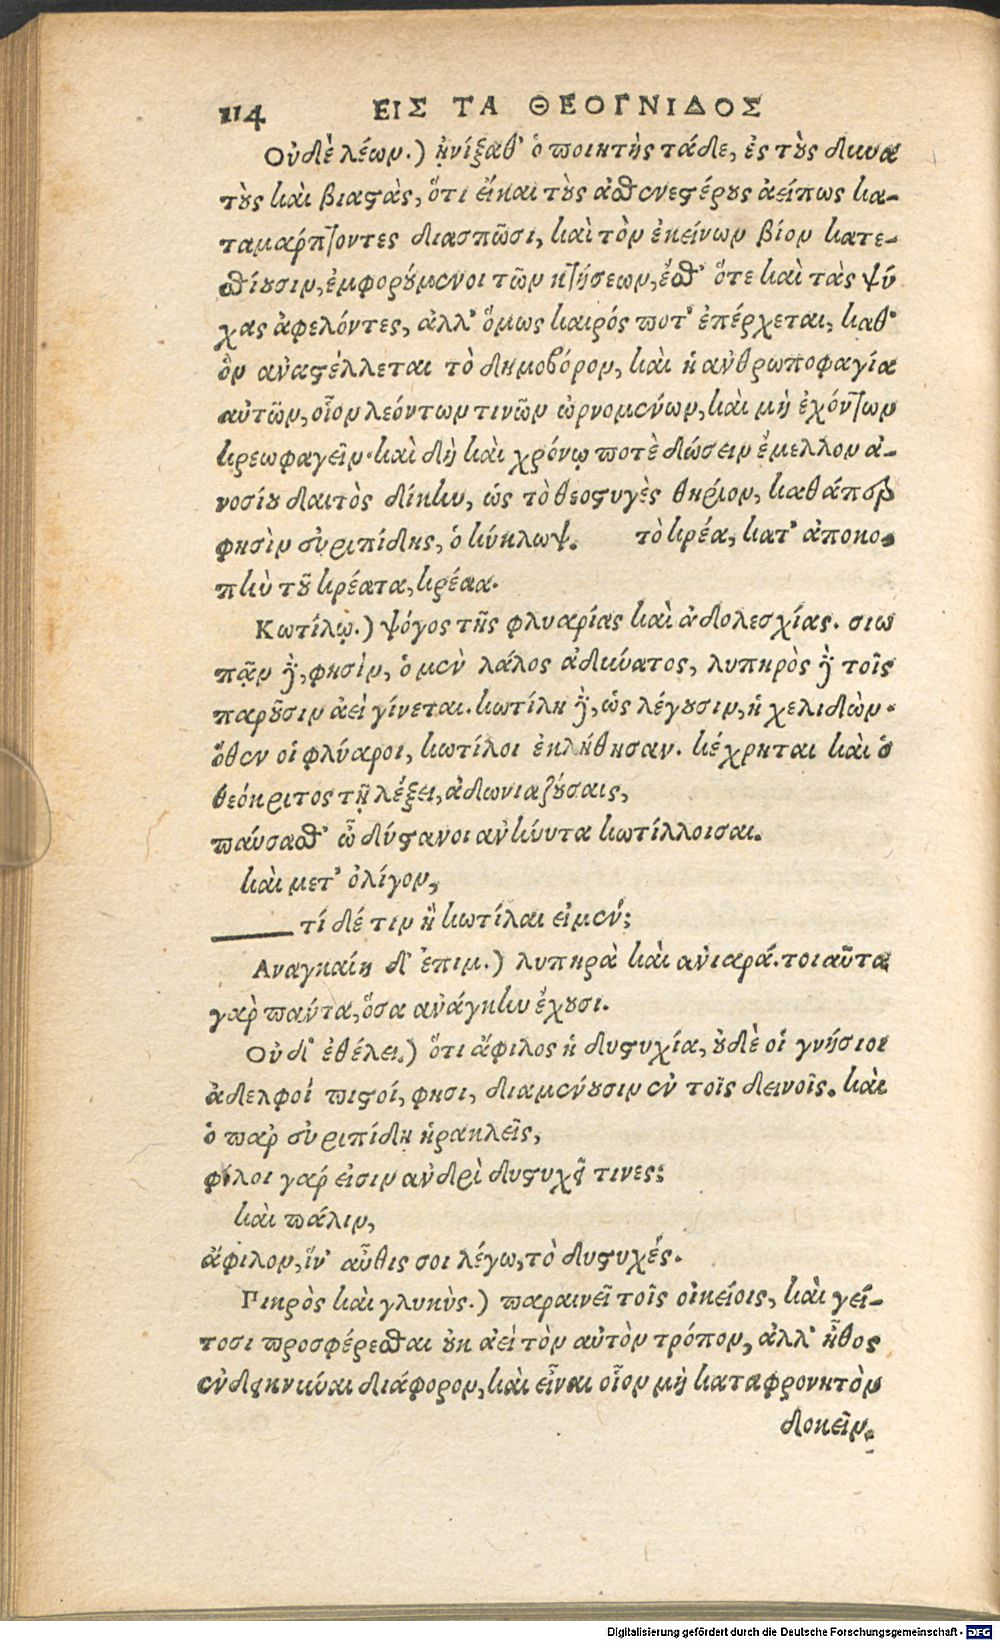 114 ΕΙΣ ΤΑ ΘΕΟΓΝΙΔΟΣ
Οὐδὲ λέων.) ᾐνίξαθ' ὁ ποιητὴς τάδε, ἐς τοὺς δυνα
τοὺς καὶ βιαστὰς, ὅτι εἴκαι τοὺς ἀσθενεστέρους ἀείπως κα-
ταμάρπτοντες διασπῶσι, καὶ τὸν ἐκείνων βίον κατε-
σθίουσιν, ἐμφορούμενοι τῶν κτήσεων, ἔσθ' ὅτε καὶ τὰς ψύ
χας ἀφελόντες, ἀλλ' ὅμως καιρός ποτ' ἐπέρχεται, καθ'
ὃν ἀναστέλλεται τὸ δημοβόρον, καὶ ἡ ἀνθρωποφαγία
αὐτῶν, οἷον λεόντων τινῶν ὠρνομένων, καὶ μὴ ἐχόντων
κρεωφαγεῖν· καὶ δὴ καὶ χρόνῳ ποτὲ δώσειν ἔμελλον ἀ-
νοσίου δαιτὸς δίκην, ὡς τὸ θεοστυγὲς θηρίον, καθάπερ
φησὶν εὐριπίδης, ὁ κύκλωψ. τὸ κρέα, κατ' ἀποκο-
πὴν τοῦ κρέατα, κρέαα.
Κωτίλῳ.) ψόγος τῆς φλυαρίας καὶ ἀδολεσχίας. σιω
πᾷν γὰρ, φησὶν, ὁ μὲν λάλος ἀδύνατος, λυπηρὸς γὰρ τοῖς
παροῦσιν ἀεὶ γίνεται. κωτίλη γὰρ, ὡς λέγουσιν, ἡ χελιδών·
ὅθεν οἱ φλύαροι, κωτίλοι ἐκλήθησαν. κέχρηται καὶ ὁ
θεόκριτος τῇ λέξει, ἀδωνιαζούσαις,
παύσασθ' ὦ δύστανοι ἀνάνυτα κωτίλλοισαι.
καὶ μετ' ὀλίγον,
τί δέ τιν ἢ κωτίλαι εἰμέν;
Αναγκαίη δ' ἐπιμ.) λυπηρὰ καὶ ἀνιαρά. τοιαῦτα
γὰρ πάντα, ὅσα ἀνάγκην ἔχουσι.
Οὐδ' ἐθέλει.) ὅτι ἄφιλος ἡ δυστυχία, οὐδὲ οἱ γνήσιοι
ἀδελφοί πιστοί, φησι, διαμένουσιν ἐν τοῖς δεινοῖς. καὶ
ὁ παρ' εὐριπίδη ἡρακλεῖς,
φίλοι γάρ εἰσιν ἀνδρὶ δυστυχεῖ τινες;
καὶ πάλιν,
ἄφιλον, ἵν' αὖθις σοι λέγω, τὸ δυστυχές.
Πικρὸς καὶ γλυκὺς.) παραινεῖ τοῖς οἰκείοις, καὶ γεί-
τοσι προσφέρεσθαι οὐκ ἀεὶ τὸν αὐτὸν τρόπον, ἀλλ' ἦθος
ἐνδεικνύναι διάφορον, καὶ εἶναι οἷον μὴ καταφρονητὸν
δοκεῖν.
Digitalisierung gefördert durch die Deutsche Forschungsgemeinschaft - DFG